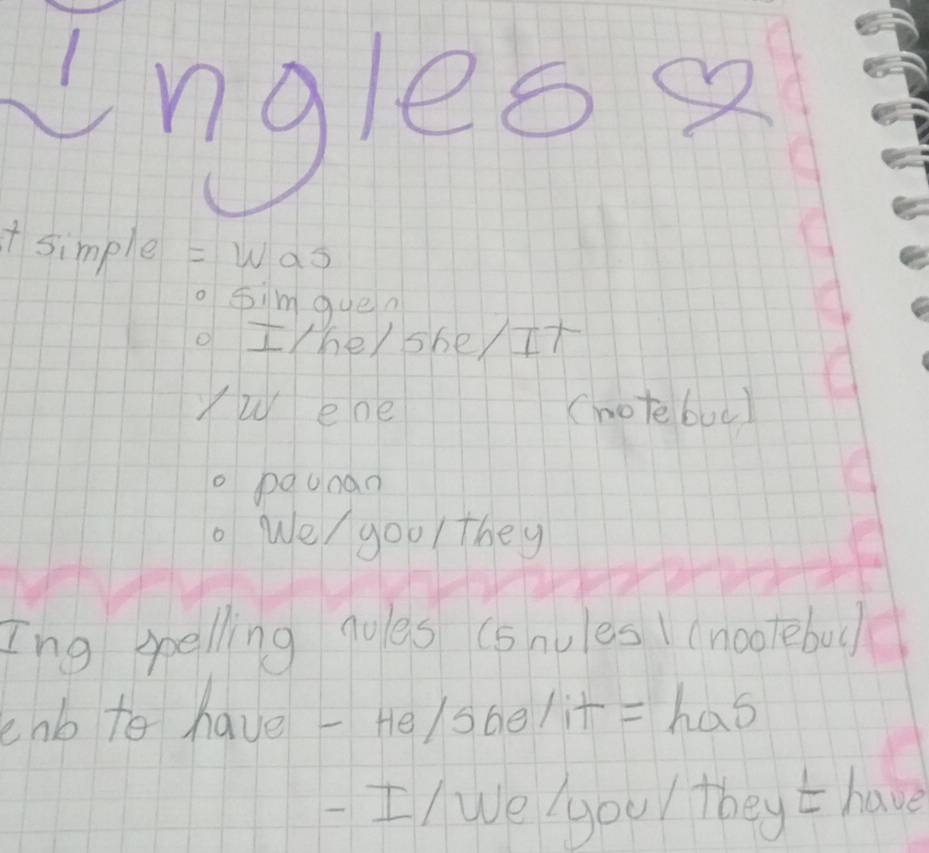 Ingles
t simple = was
simguen
I/he/she/It
/w ene (notebuc)
paunan
We/you/they
Ing spelling nules (5 nules) (nootebuc)
enb to have - He/she/it = has
- I/We/you/they = have